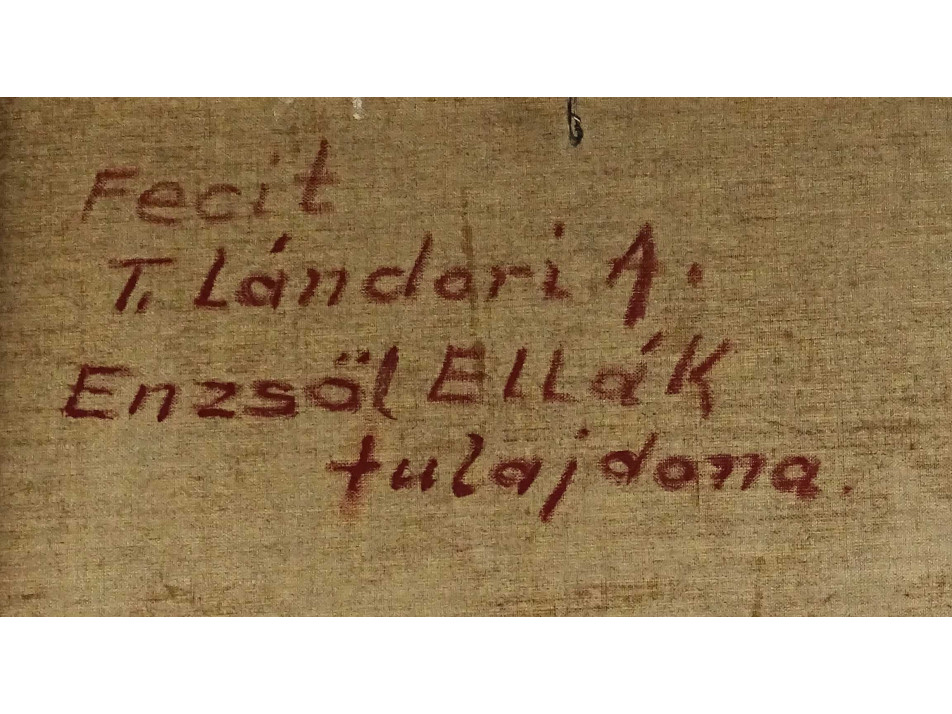 Fecit
T. Lándori A.
Enzsöl Ellák
tulajdona.